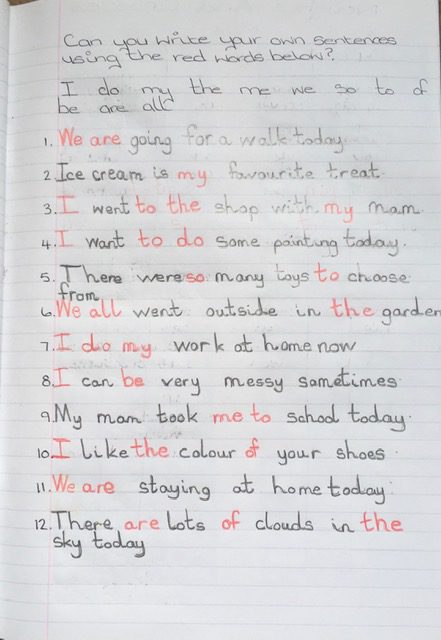 Can you write your own sentences
using the red words below?
I do my the me we so to of
be are all
1. We are going for a walk today.
2. Ice cream is my favourite treat.
3. I went to the shop with my mam.
4. I want to do some painting today.
5. There were so many toys to choose
from
6. We all went outside in the garden
7. I do my work at home now
8. I can be very messy sometimes.
9. My mam took me to school today.
10. I like the colour of your shoes.
11. We are staying at home today.
12. There are lots of clouds in the
sky today